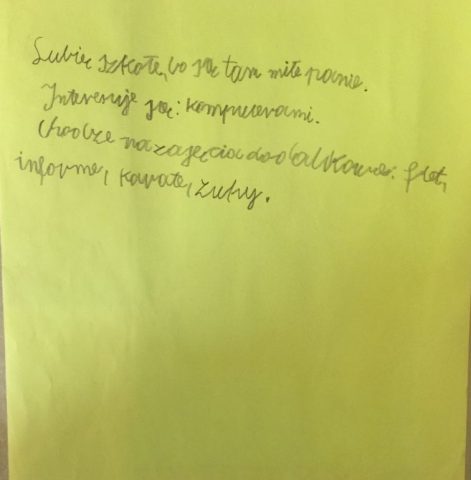 Lubię szkołe, bo są tam miłe panie.
Interesuje się: komputerami.
Chodze na zajęcia dodatkowe: flet,
informe, karate, zuhy.